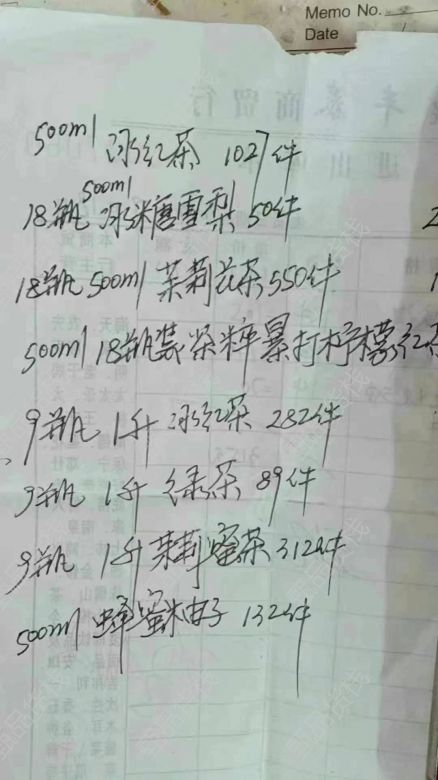 Memo No.
Date
500ml 冰红茶 1027件
18瓶 500ml 冰糖雪梨 50件
18瓶 500ml 茉莉花茶 550件
500ml 18瓶装 茶粹暴打柠檬红茶
9瓶 1升 冰红茶 282件
9瓶 1升 绿茶 89件
9瓶 1升 茉莉蜜茶 312件
500ml 蜂蜜柚子 132件